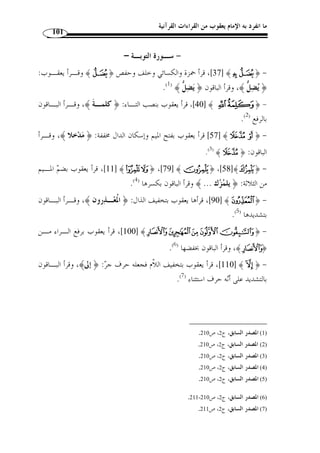 ما انفرد به الإمام يعقوب من القراءات القرآنية
101
– سورة التوبة –
– ﴿ يُضَلُّ بِهِ ﴾ [37]، قرأ حمزة والكسائي وخلف وحفص ﴿ يُضَلُّ ﴾ وقرأ يعقوب:
﴿ يُضِلُّ ﴾، وقرأ الباقون ﴿ يَضِلُّ ﴾.(1)
– ﴿ وَكَلِمَةُ اللَّهِ ﴾ [40]، قرأ يعقوب بنصب التاء: ﴿ كلمةَ ﴾، وقرأ الباقون
بالرفع.(2)
– ﴿ أَوْ مُدَّخَلًا ﴾ [57] قرأ يعقوب بفتح الميم وإسكان الدال مخففة: ﴿ مَدْخَلا ﴾، وقرأ
الباقون: ﴿ مُدَّخَلًا ﴾.(3)
– ﴿ يَلْمِزُكَ ﴾ [58]، ﴿ يَلْمِزُونَ ﴾ [79]، ﴿ وَلَا تَلْمِزُوا ﴾ [11]، قرأ يعقوب بضمّ الميم
من الثلاثة: ﴿ يلمُزك ... ﴾ وقرأ الباقون بكسرها.(4)
– ﴿ الْمُعَذِّرُونَ ﴾ [90]، قرأها يعقوب بتخفيف الذال: ﴿ المُعْذِرون ﴾، وقرأ الباقون
بتشديدها.(5)
– ﴿ وَالسَّابِقُونَ الْأَوَّلُونَ مِنَ الْمُهَاجِرِينَ وَالْأَنصَارِ ﴾ [100]، قرأ يعقوب برفع الراء من
﴿ وَالْأَنصَارِ ﴾، وقرأ الباقون بخفضها.(6)
– ﴿ إِلَّا ﴾ [110]، قرأ يعقوب بتخفيف اللام فجعله حرف جرّ: ﴿ إلى ﴾، وقرأ الباقون
بالتشديد على أنّه حرف استثناء.(7)
(1) المصدر السابق، ج2، ص210.
(2) المصدر السابق، ج2، ص210.
(3) المصدر السابق، ج2، ص210.
(4) المصدر السابق، ج2، ص210.
(5) المصدر السابق، ج2، ص210.
(6) المصدر السابق، ج2، ص210-211.
(7) المصدر السابق، ج2، ص211.